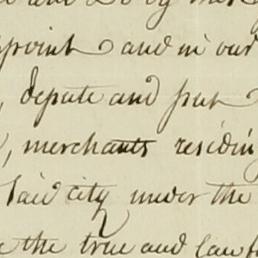 ppoint and in our
, depute and put
, merchants residin
said city under the
the true and lawf